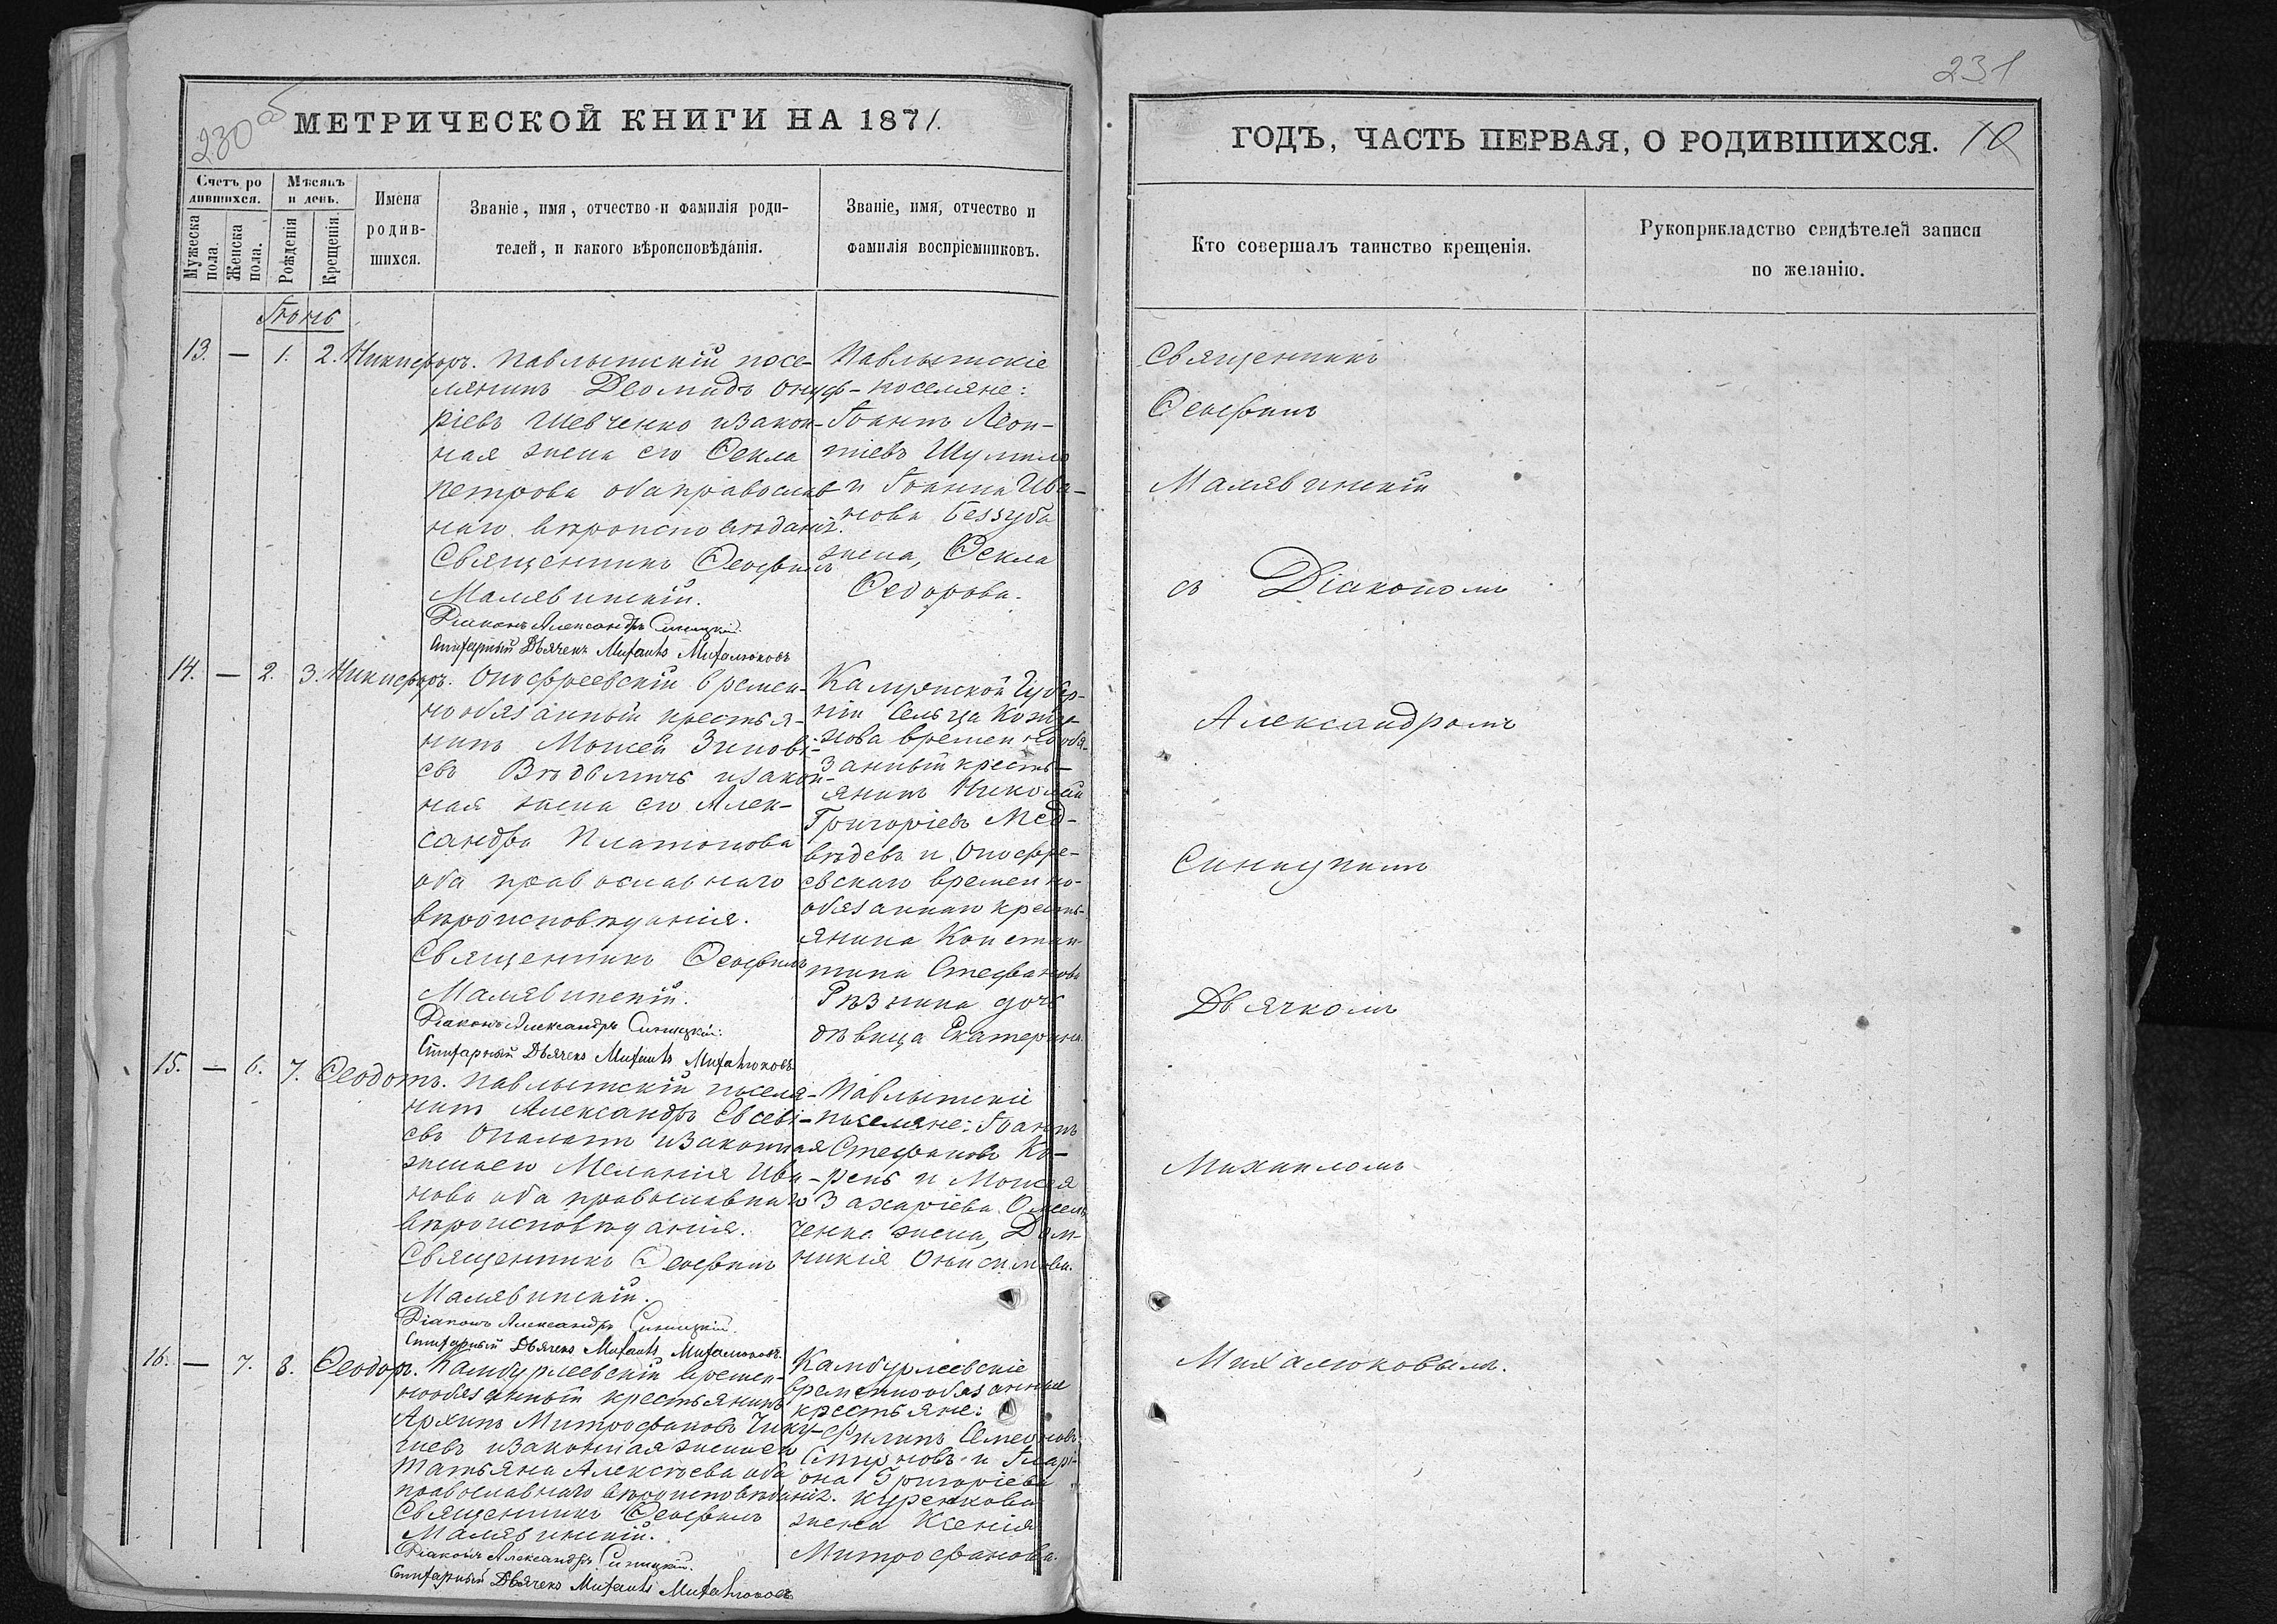 230 об
МЕТРИЧЕСКОЙ КНИГИ НА 1871.
Счетъ ро
дившихся.
Мужеска
пола.
Женска
пола.
Мѣсяцъ
и день.
Рожденія
Крещенія.
Имена
родив-
шихся.
Званіе, имя, отчество и фамилія роди-
телей, и какого вѣроисповѣданія.
Званіе, имя, отчество и
фамилія воспріемниковъ.
Іюнь
13. — 1. 2. Никифоръ.
Павлышскій посе-
лянинъ Деомидъ Онуф-
ріевъ Шевченко изакон-
ная жена его Ѳекла
Петрова оба православ-
наго вѣроисповѣданія.
Священникъ Ѳеофилъ
Малявинскій.
Діаконъ Александръ Синицкій.
Дьячекъ Михаилъ Михалюковъ
Павлышскіе
поселяне:
Іоаннъ Леон-
тіевъ Шумило
и Іоанна Ива-
нова Беззуба
жена, Ѳекла
Ѳедорова.
14. — 2. 3. Никифоръ.
Онофреевскій времен-
нообязанный крестья-
нинъ Моисей Зинові-
евъ Вѣдьмичъ изакон-
ная жена его Алек-
сандра Платонова
оба православнаго
вѣроисповѣданія.
Священникъ Ѳеофилъ
Малявинскій.
Діаконъ Александръ Синицкій.
Дьячекъ Михаилъ Михалюковъ
Калужской Губер-
ніи Сельца
нова временнообя-
занный кресть-
янинъ Николай
Григоріевъ Мед-
вѣдевъ и Онофре-
евскаго временно-
обязаннаго кресть-
янина Констан-
тина Стефанова
Рѣзника дочь
дѣвица Екатерина.
15. — 6. 7. Ѳеодотъ.
Павлышскій поселя-
нинъ Александръ Евсеві-
евъ Опалатъ изаконная
жена его Меланія Ива-
нова оба православнаго
вѣроисповѣданія.
Священникъ Ѳеофилъ
Малявинскій.
Діаконъ Александръ Синицкій.
Дьячекъ Михаилъ Михалюковъ.
Павлышскіе
поселяне: Іоаннъ
Стефановъ Ко-
рень и Моисея
Захаріева Омель
ченка жена, Дом-
никія Онисимова.
16. — 7. 8. Ѳеодоръ.
Камбурлеевскій времен-
нообязанный крестьянинъ
Архипъ Митрофановъ Чику-
изаконная жена его
Татьяна Алексѣева оба
православнаго вѣроисповѣданія.
Священникъ Ѳеофилъ
Малявинскій.
Діаконъ Александръ Синицкій.
Дьячекъ Михаилъ Михалюковъ
Камбурлеевскіе
временнообязанные
крестьяне:
Филипъ Семеоновъ
Смирновъ и Иларі-
она Григоріева
Куренкова
жена Ксенія
Митрофанова.
231
ГОДЪ, ЧАСТЬ ПЕРВАЯ, О РОДИВШИХСЯ. 10
Кто совершалъ таинство крещенія.
Рукоприкладство свидѣтелей записи
по желанію.
Священникъ
Ѳеофилъ
Малявинскій
съ Діакономъ
Александромъ
Синицкимъ
Дьячкомъ
Михаиломъ
Михалюковымъ.